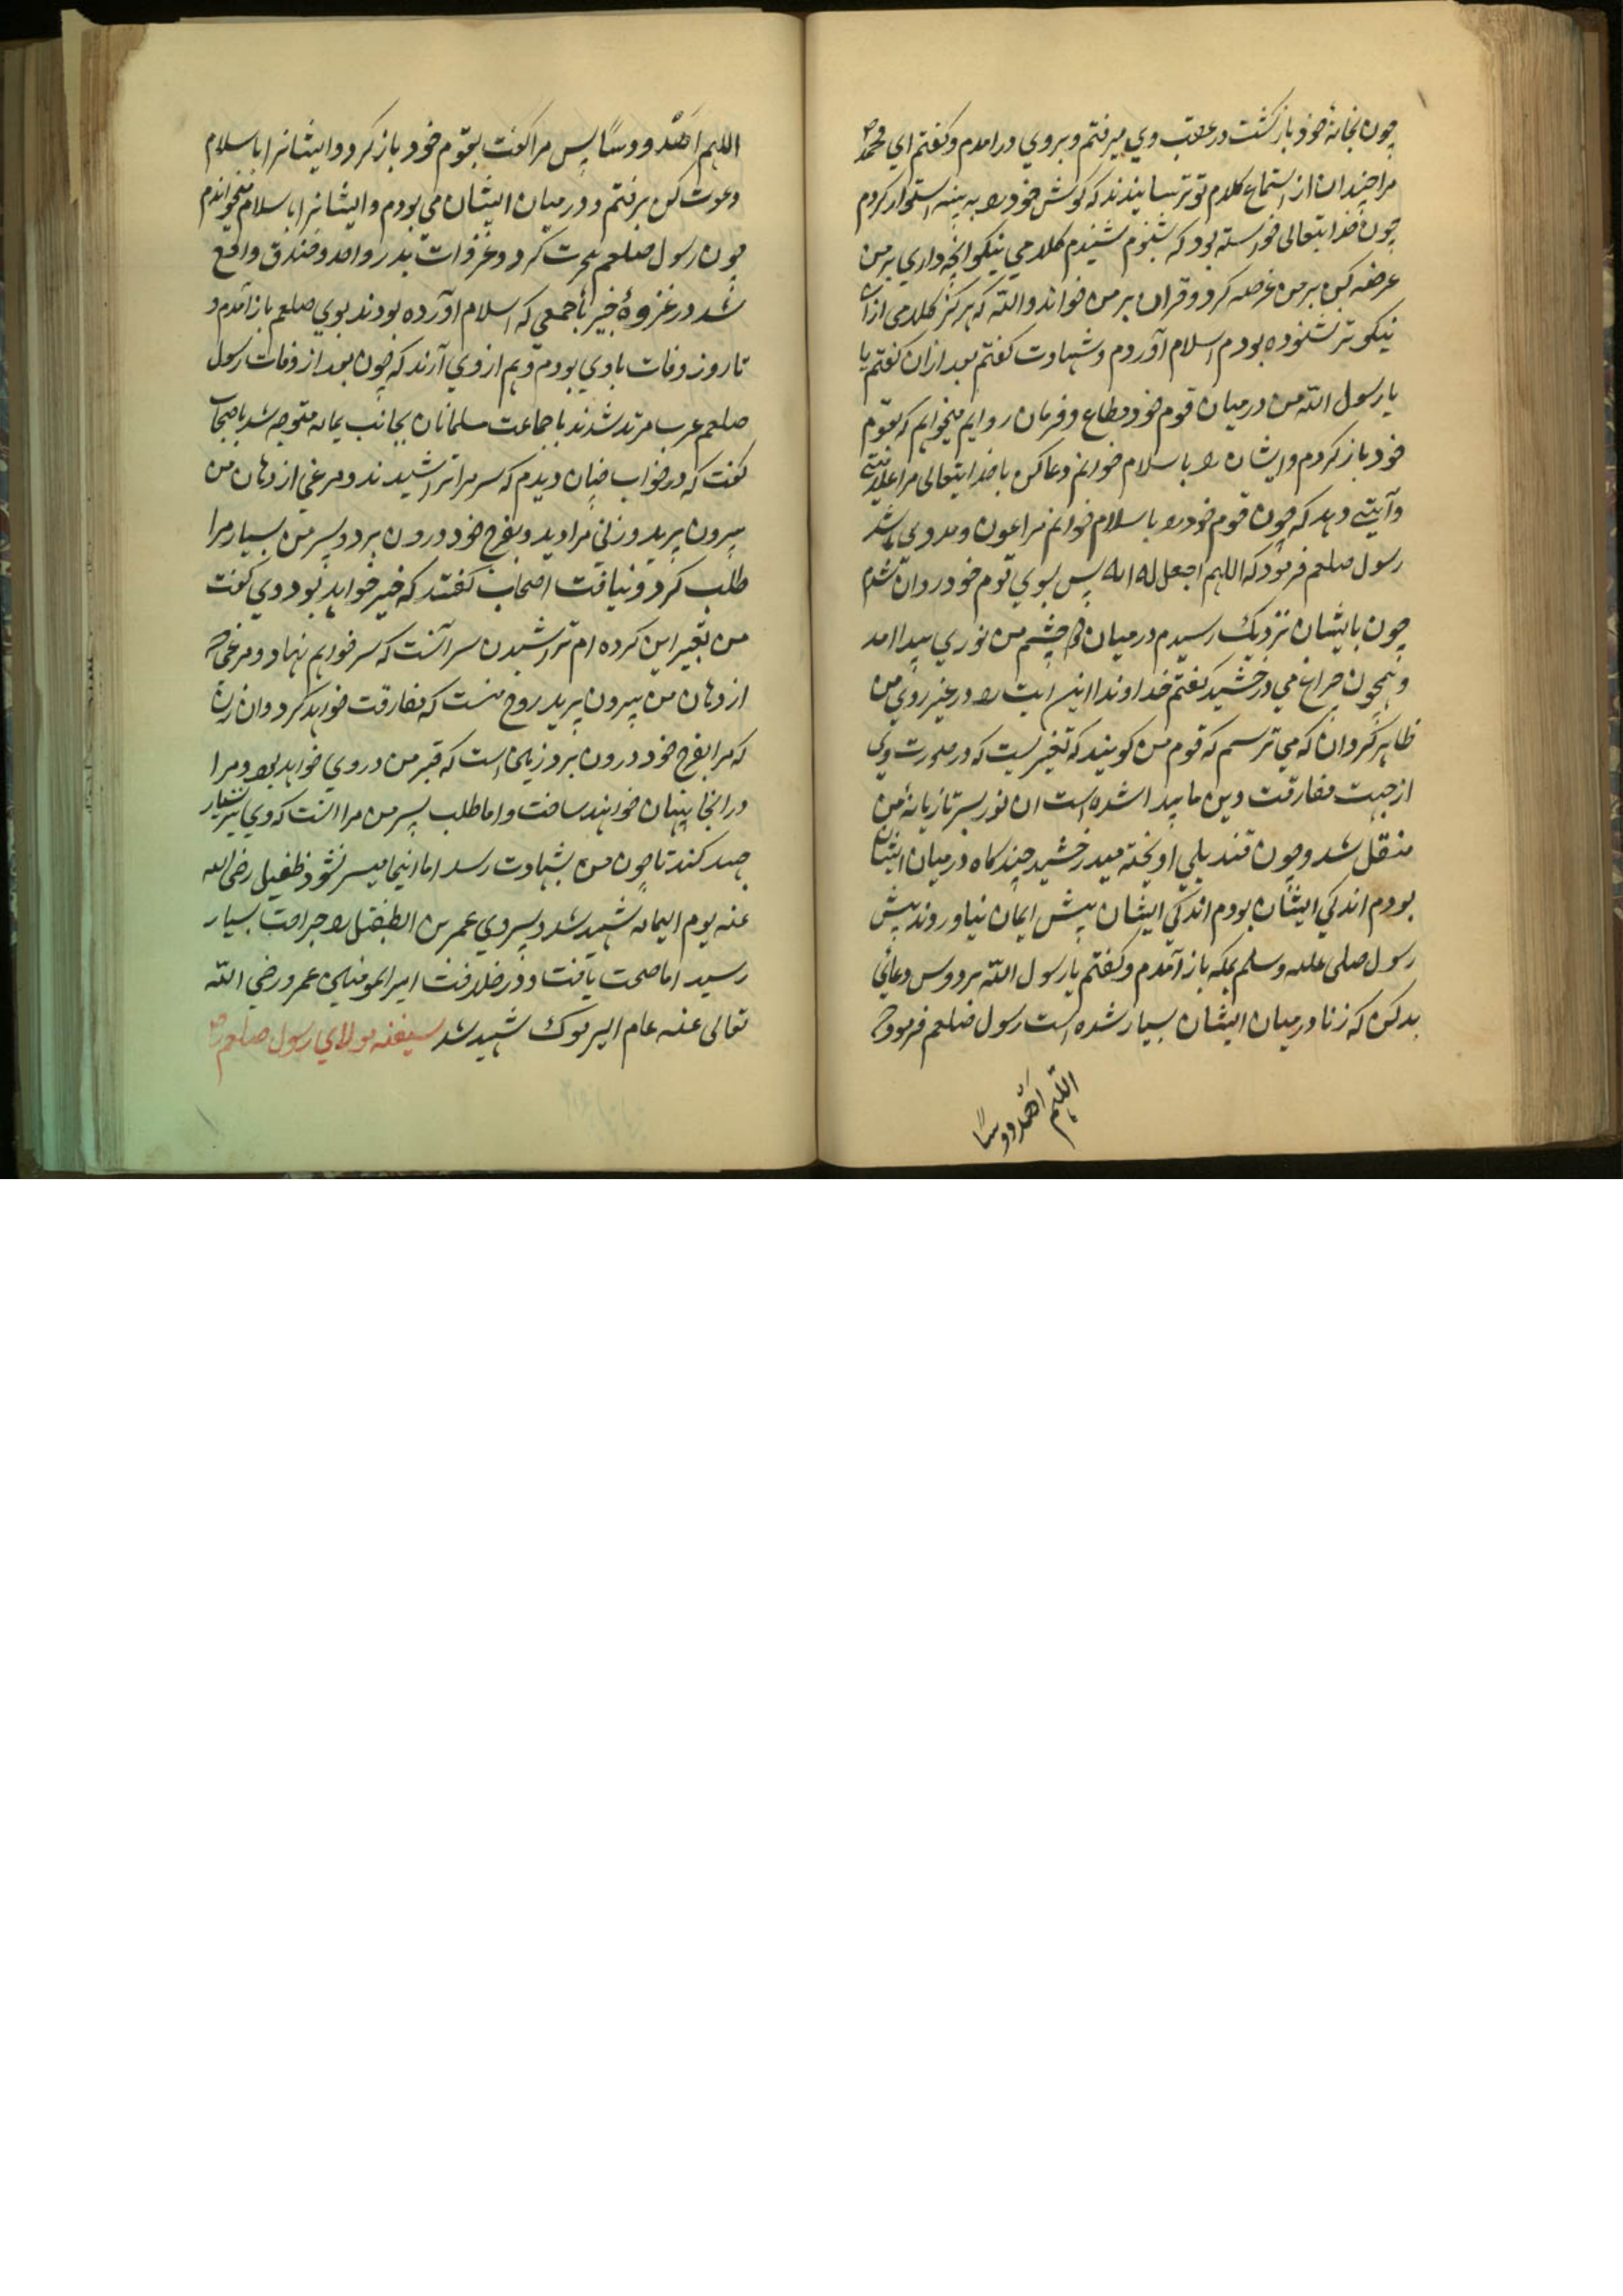 چون بخانهٔ خود بازگشت در عقب وي ميرفتم و بروي درامدم و گفتم اي محمد
مرا چندان از استماع كلام تو ترسانيدند كه گوش خود را به پنبه استوار كردم
چون خدايتعالى خواسته بود كه بشنوم شنيدم كلامي نيكو انچه داري بر من
عرضه كن بر من عرضه كرد و قران بر من خواند والله كه هرگز كلامى از ان
نيكوتر نشنوده بودم اسلام آوردم و شهادت گفتم بعد ازان گفتم يا
يا رسول الله من در ميان قوم خود مطاع و فرمان روايم ميخواهم كه بقوم
خود باز كردم و ايشان را باسلام خوانم دعا كن با خدايتعالى مرا علامتى
و آيتي دهد كه چون قوم خود را باسلام خوانم مرا عون و مددى باشد
رسول صلعم فرمود كه اللهم اجعل له ايه پس بسوي قوم خود روان شدم
چون بايشان نزديك رسيدم درميان دو چشم من نوري پيدا امد
و همچون چراغ مي درخشيد گفتم خداوندا اين ايت را در غير روي من
ظاهر گردان كه مي ترسم كه قوم من گويند كه تغييريست كه در صورت وي
از جهت مفارقت دين ما پيدا شده است ان نور بسر تازيانهٔ من
منتقل شد و چون قنديلي اويخته ميدرخشيد چند كاه درميان ايشان
بودم اندكي ايشان بودم اندكي ايشان بيش ايمان نياوروند پيش
رسول صلى عليه وسلم بمكه باز آمدم و گفتم يا رسول الله بر دوس دعائي
بد كن كه زنا درميان ايشان بسيار شده است رسول صلعم فرمود كه
اللهم اهد دوسًا
اللهم اهد دوسًا پس مرا گفت بقوم خود باز كرد و ايشانرا باسلام
دعوت كن برفتم و درميان ايشان مي بودم و ايشانرا باسلام ميخواندم
چون رسول صلعم هجرت كرد و غزوات بدر و احد و خندق واقع
شد در غزوهٔ خيبر با جمعي كه اسلام اورده بودند بوي صلعم باز آمدم و
تا روز وفات با وي بودم و هم از وي آرند كه چون بعد از وفات رسول
صلعم عرب مرتد شدند با جماعت مسلمانان بجانب يمامه متوجه شد با اصحاب
گفت كه در خواب چنان ديدم كه سر مرا تراشيدند و مرغي از دهان من
بيرون پريد و زني مرا ديد و بفرج خود درون برد و پسر من بسيار مرا
طلب كرد و نيافت اصحاب گفتند كه خير خواهد بود وي گفت
من تعبير اين كرده ام تراشيدن سر آنست كه سر خواهم نهاد و مرغى كه
از دهان من بيرون پريد روح منست كه مفارقت خواهد كرد و ان زن
كه مرا بفرج خود درون برد زمين است كه قبر من در وي خواهد بود و مرا
در انجا پنهان خواهند ساخت و اما طلب پسر من مرا انست كه وي نيز بسيار
جهد كند تا چون من بشهادت رسد اما اينجا ميسر نشود طفيل رضى الله
عنه يوم اليمامه شهيد شد و پسر وي عمر بن الطفيل را جراحت بسيار
رسيد اما صحت يافت و در خلافت امير المومنين عمر رضي الله
تعالى عنه عام اليرموك شهيد شد سفينه مولاي رسول صلعم